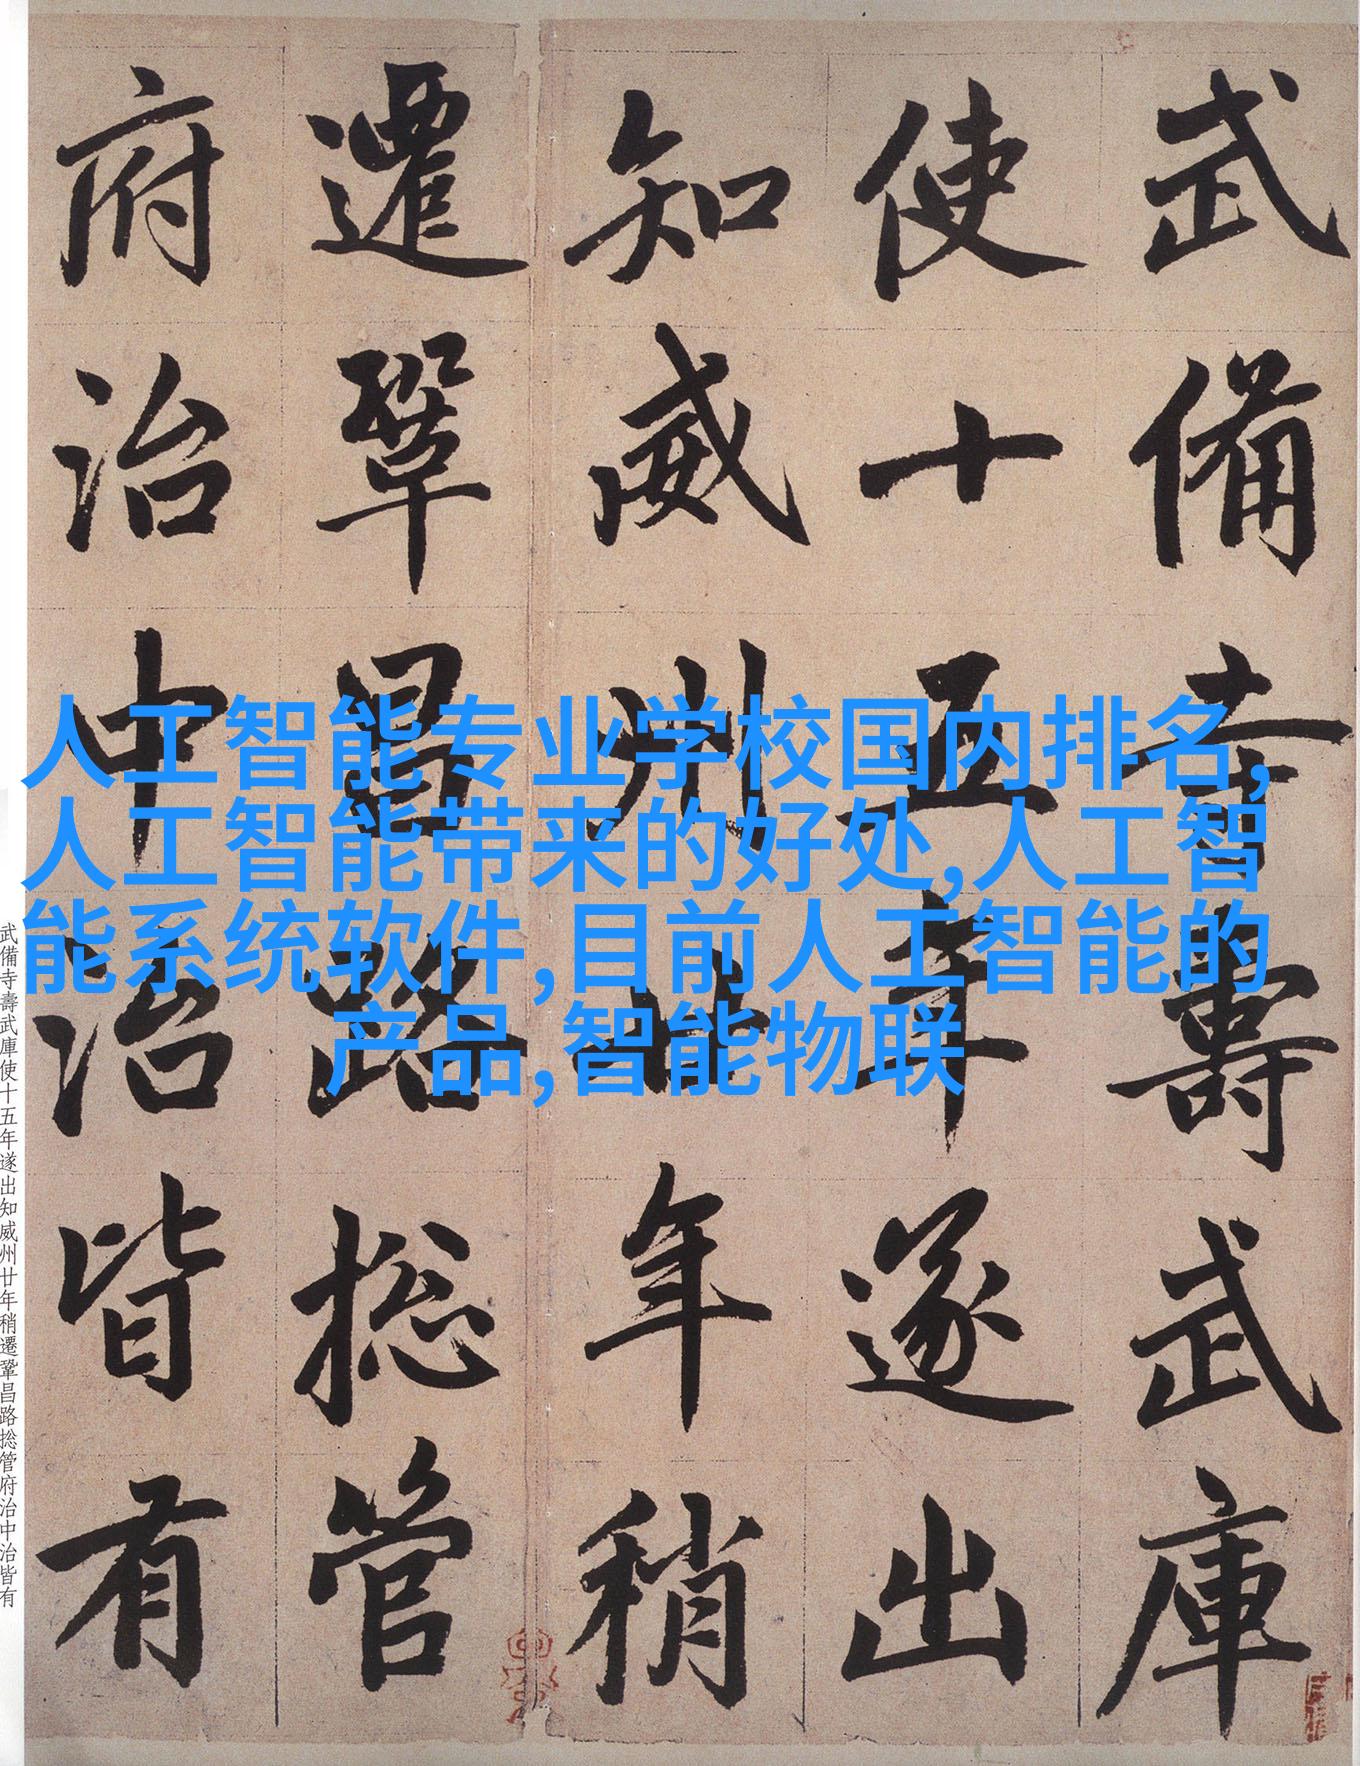 武備寺壽武庫
使十五年遂出
知威州廿年稍
遷鞏昌路捴管
府治中治皆有
人工智能专业学校国内排名,
人工智能带来的好处,人工智
能系统软件,目前人工智能的
产品,智能物联
武備寺壽武庫使十五年遂出知威州廿年稍遷鞏昌路捴管府治中治皆有